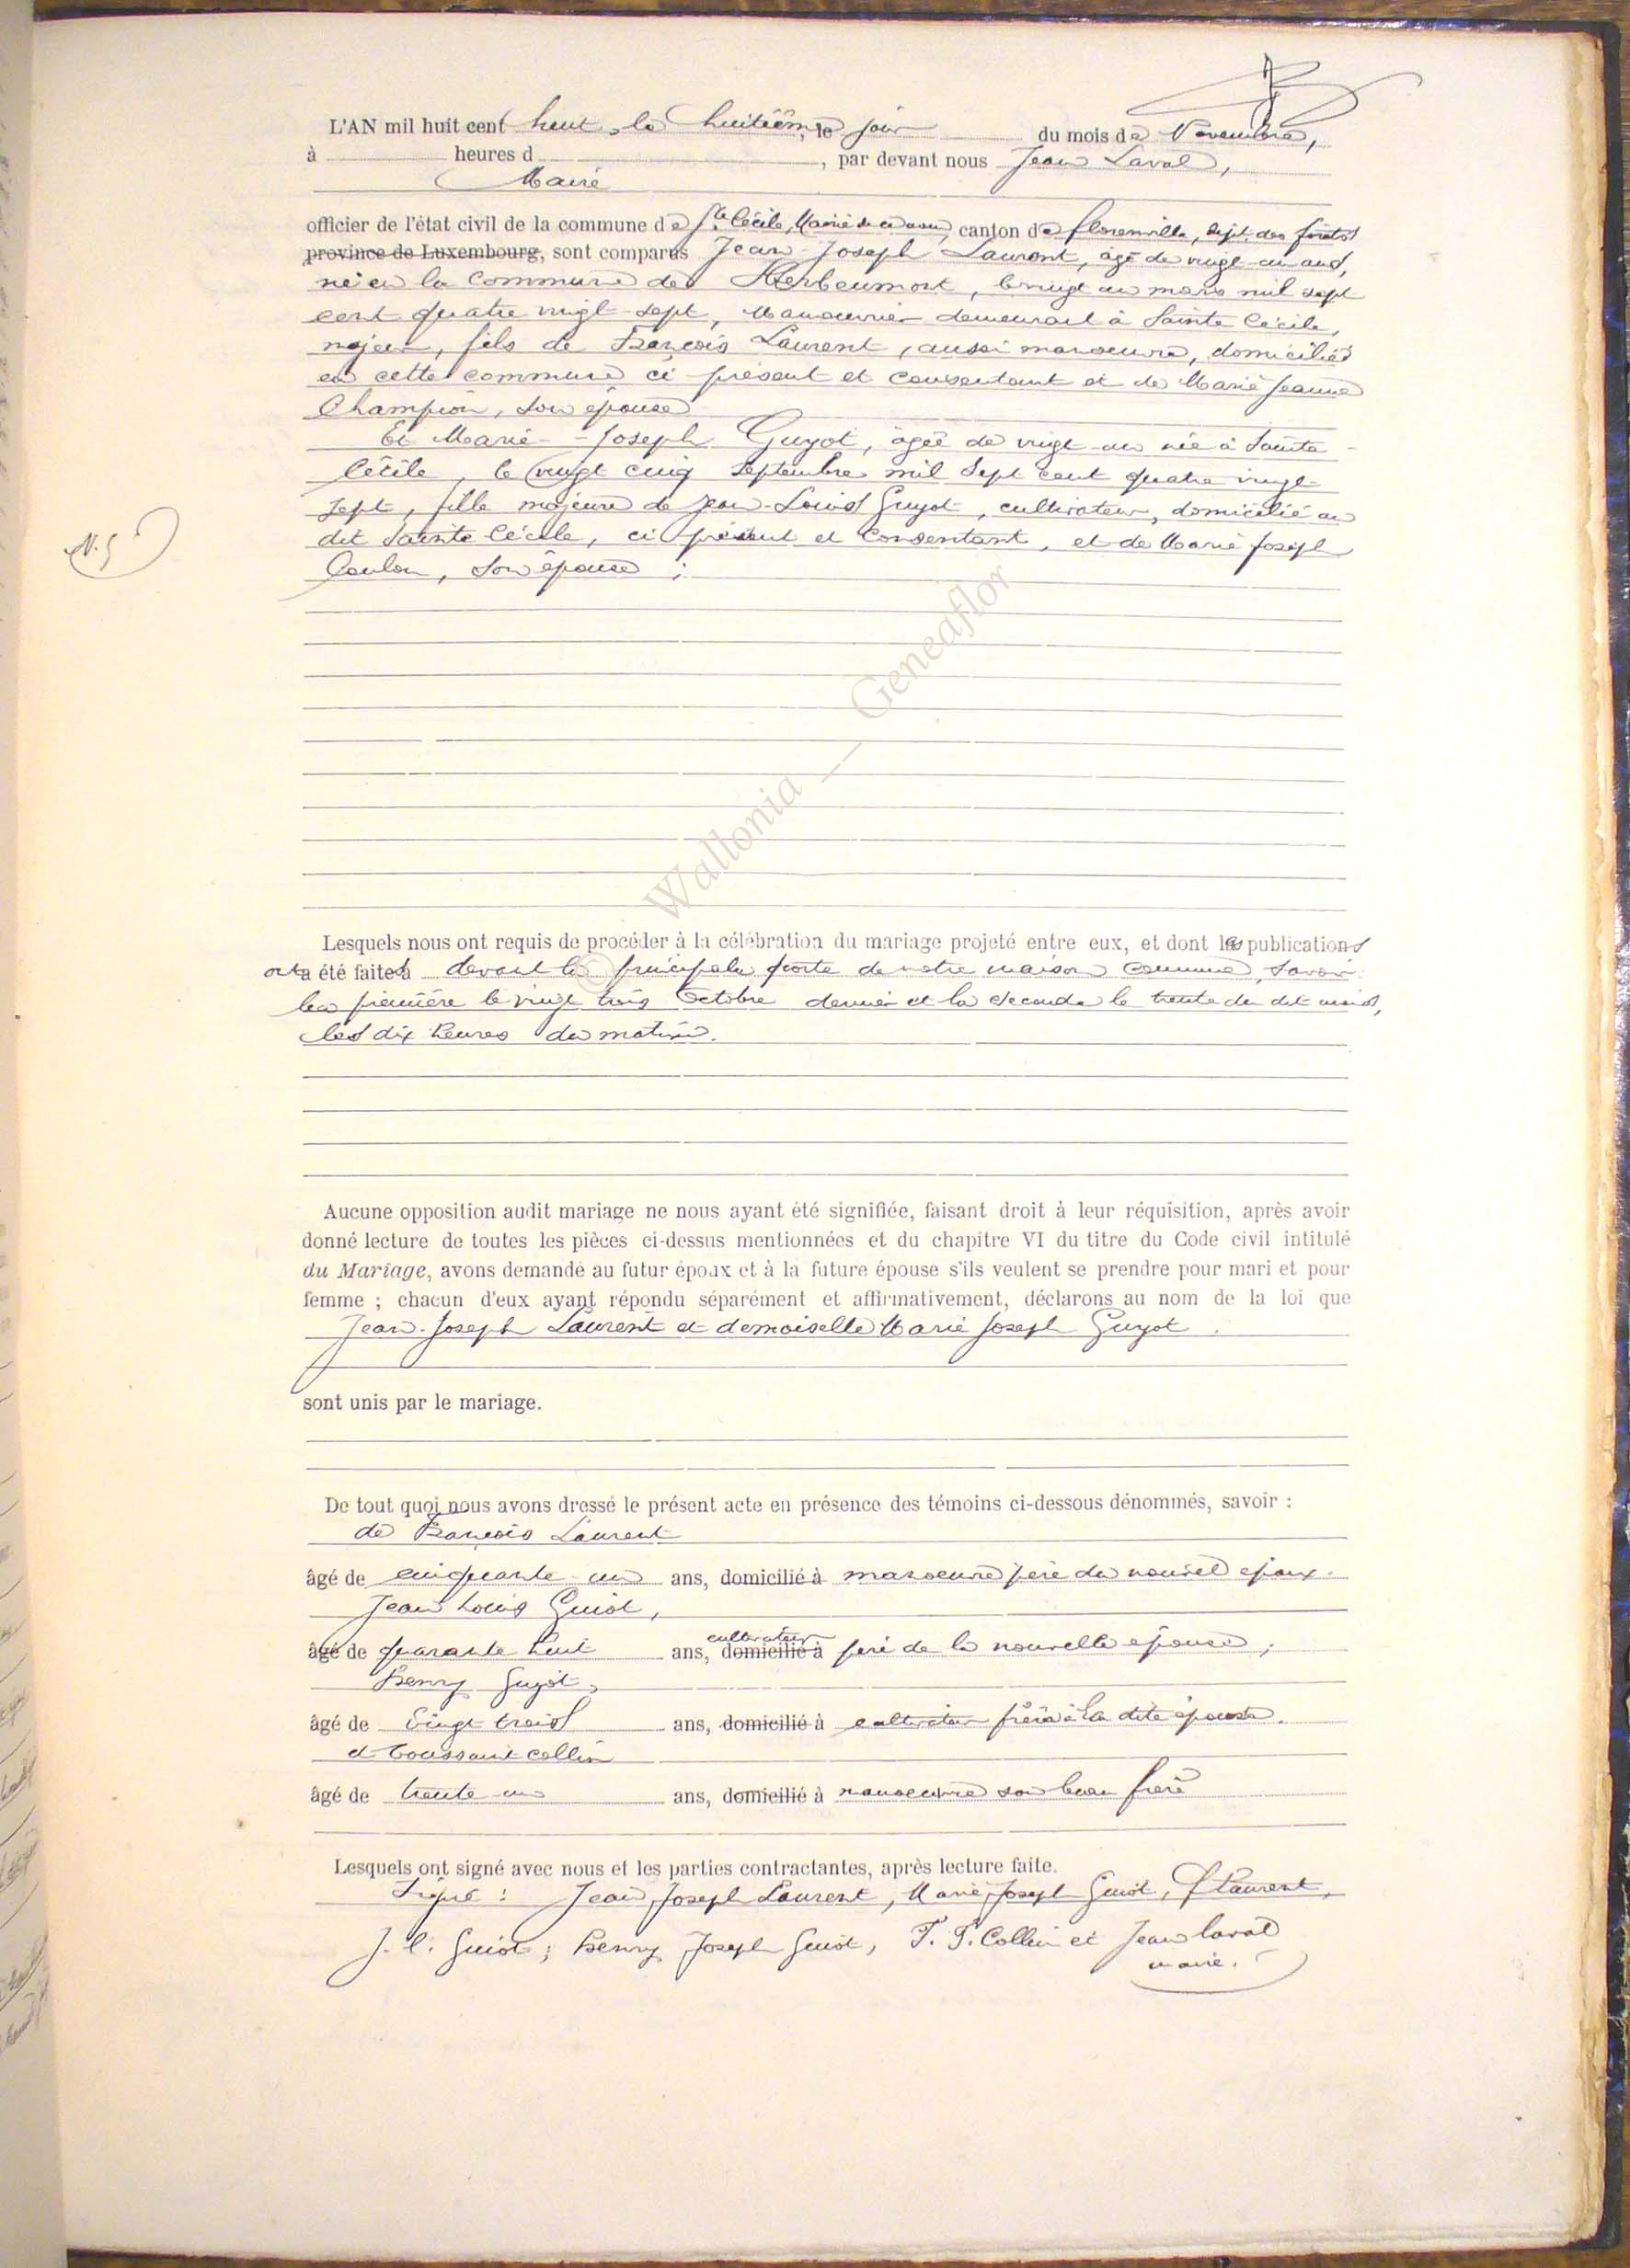 L'AN mil huit cent huit, le huitième jour du mois de Novembre,
à heures d , par devant nous Jean Laval,
Maire
officier de l'état civil de la commune de Ste Cécile, Mairie de ce nom, canton de florenville, dépt. des forêts
province de Luxembourg, sont comparus Jean Joseph Laurent, âgé de vingt un ans,
né en la commune de Herbeumont, le vingt un mars mil sept
cent quatre vingt-sept, Manouvrier demeurant à Sainte Cécile,
majeur, fils de François Laurent, aussi manoeuvre, domicilié
en cette commune ci présent et consentant et de Marie Jeanne
Champion, son épouse
Et Marie-Joseph Guyot, âgée de vingt-un née à Sainte
Cécile, le vingt cinq septembre mil sept cent quatre vingt
sept, fille majeure de Jean-Louis Guyot, cultivateur, domicilié au
dit Sainte Cécile, ci présent et consentant, et de Marie Joseph
N. 5
Coulon, son épouse ;
© Wallonia — Geneaflor
Lesquels nous ont requis de procéder à la célébration du mariage projeté entre eux, et dont les publications
ont été faites devant la principale porte de notre maison commune, savoir :
la première le vingt trois Octobre dernier et la seconde le trente du dit mois,
les dix heures du matin.
Aucune opposition audit mariage ne nous ayant été signifiée, faisant droit à leur réquisition, après avoir
donné lecture de toutes les pièces ci-dessus mentionnées et du chapitre VI du titre du Code civil intitulé
du Mariage, avons demandé au futur époux et à la future épouse s'ils veulent se prendre pour mari et pour
femme ; chacun d'eux ayant répondu séparément et affirmativement, déclarons au nom de la loi que
Jean-Joseph Laurent et demoiselle Marie Joseph Guyot.
sont unis par le mariage.
De tout quoi nous avons dressé le présent acte en présence des témoins ci-dessous dénommés, savoir :
de François Laurent
âgé de cinquante-un ans, domicilié à manoeuvre père du nouvel époux.
Jean Louis Guiot,
cultivateur
âgé de quarante huit ans, domicilié à père de la nouvelle épouse ;
Henry Guyot,
âgé de Vingt trois ans, domicilié à cultivateur frère à la dite épouse.
et Toussaint Collin
âgé de trente-un ans, domicilié à manoeuvre son beau frère
Lesquels ont signé avec nous et les parties contractantes, après lecture faite.
Signé : Jean Joseph Laurent, Marie Joseph Guiot, f Laurent,
J. l. Guiot ; Henry Joseph Guiot, T. J. Collin et Jean laval
maire.